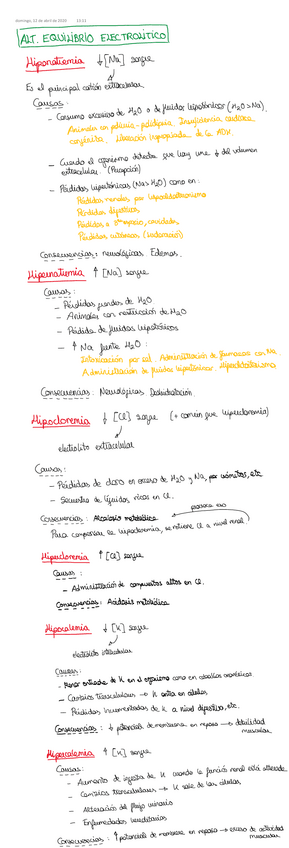 domingo, 12 de abril de 2020 13:51
ALT. EQUILIBRIO ELECTROLÍTICO
Hiponatremia ↓ [Na] sangre
Es el principal catión extracelular
Causas:
- Consumo excesivo de H2O o de fluidos hipotónicos (H2O > Na).
Animales con poliuria-polidipsia. Insuficiencia cardíaca
congestiva. Liberación inapropiada de la ADH.
- Cuando el organismo detecta que hay una ↓ del volumen
extracelular.
- Pérdidas hipertónicas (Na > H2O) como en:
Pérdidas renales por hipoaldosteronismo
Pérdidas digestivas
Pérdidas a 3er espacio, cavidades
Pérdidas cutáneas (sudoración)
Consecuencias: neurológicas. Edemas.
Hipernatremia ↑ [Na] sangre
Causas:
- Pérdidas puras de H2O
- Animales con restricción de H2O
- Pérdida de fluidos hipotónicos
- ↑ Na frente H2O:
Intoxicación por sal. Administración de fármacos con Na.
Administración de fluidos hipertónicos.
Consecuencias: Neurológicas. Deshidratación.
Hipocloremia ↓ [Cl] sangre (+ común que hipercloremia)
electrolito extracelular
Causas:
- Pérdidas de cloro en exceso de H2O y Na, por vómitos, etc
- Secuestro de líquidos ricos en Cl.
Consecuencias: Alcalosis metabólica
Para compensar la hipocloremia, se retiene Cl a nivel renal
Hipercloremia ↑ [Cl] sangre
Causas:
- Administración de compuestos altos en Cl.
Consecuencias: Acidosis metabólica
Hipocalemia ↓ [K] sangre
electrolito intracelular
Causas:
- Menor entrada de K en el organismo como en caballos anoréxicos
- Cambios transcelulares → K entra en células
- Pérdidas incrementadas de K a nivel digestivo, etc.
Consecuencias: ↓ potencial de membrana en reposo → debilidad
muscular.
Hipercalemia ↑ [K] sangre
Causas:
- Aumento de ingesta de K cuando la función renal está alterada
- Cambios transcelulares → K sale de las células
- Alteración del flujo urinario
- Enfermedades hereditarias
Consecuencias: ↑ potencial de membrana en reposo → exceso de actividad
muscular.